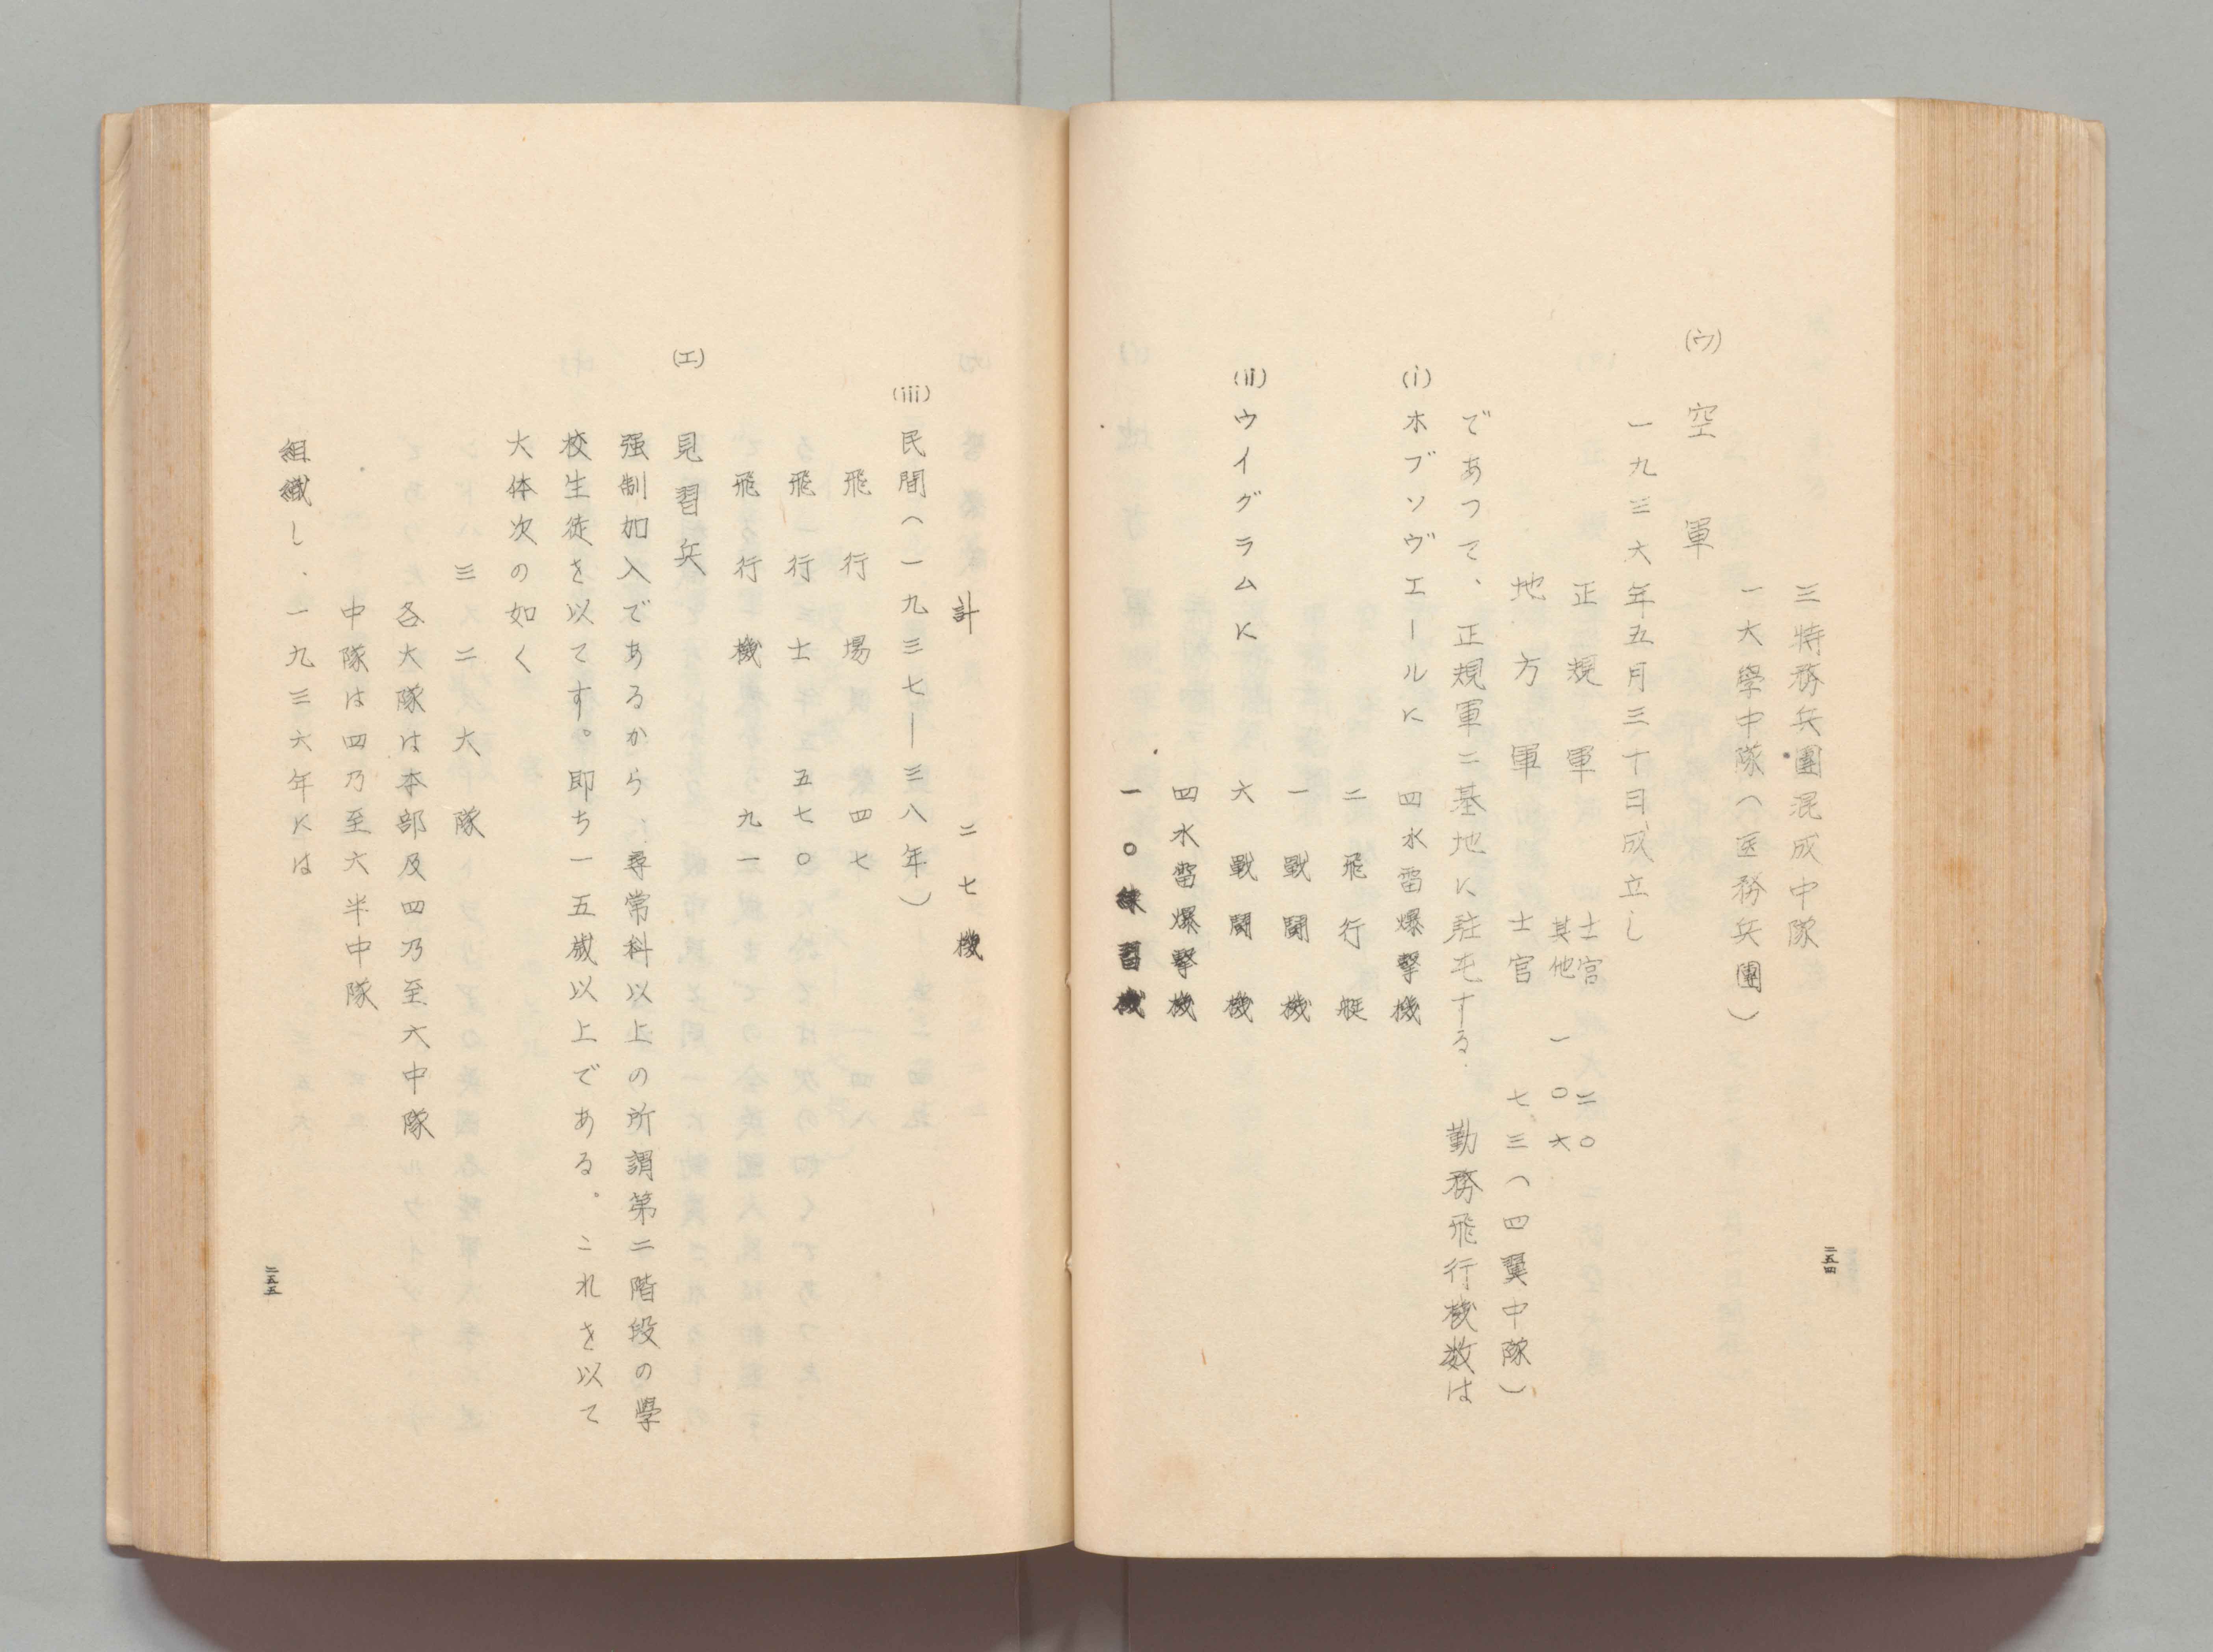 三特務兵團混成中隊
一大學中隊（医務兵團）
(ウ) 空軍
一九三六年五月三十日成立し
正規軍 士官 二〇
其他 一〇六
地方軍 士官 七三（四翼中隊）
であつて、正規軍二基地に駐屯する. 勤務飛行機数は
(i) ホブソヴエールに 四水雷爆撃機
二飛行艇
一戰闘機
(ii) ウイグラムに 六戰闘機
四水雷爆撃機
一〇練習機
二五四
計 二七機
(iii) 民間（一九三七—三八年）
飛行場 四七
飛行士 五七〇
飛行機 九一
(エ) 見習兵
强制加入であるから、尋常科以上の所謂第二階段の學
校生徒を以てす。即ち一五歲以上である。これを以て
大体次の如く
三二大隊
各大隊は本部及四乃至六中隊
中隊は四乃至六半中隊
組織し、一九三六年には
二五五